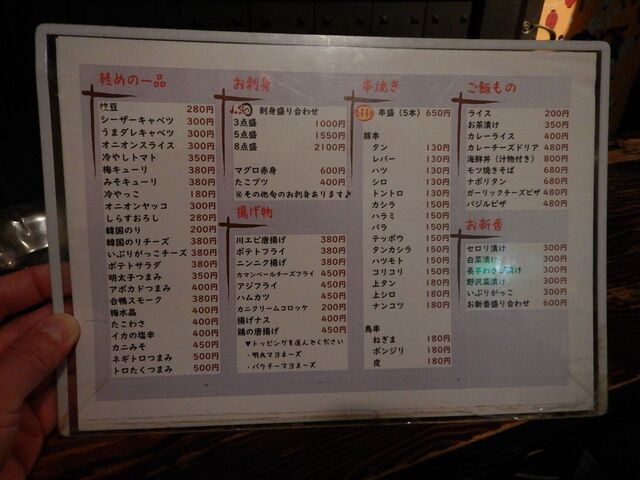 軽めの一品
枝豆 280円
シーザーキャベツ 300円
うまダレキャベツ 300円
オニオンスライス 300円
冷やしトマト 350円
梅キューリ 380円
みそキューリ 380円
冷やっこ 180円
オニオンヤッコ 300円
しらすおろし 280円
韓国のり 200円
韓国のりチーズ 380円
いぶりがっこチーズ 380円
ポテトサラダ 380円
明太子つまみ 350円
アボカドつまみ 400円
合鴨スモーク 380円
梅水晶 400円
たこわさ 400円
イカの塩辛 400円
カニみそ 450円
ネギトロつまみ 500円
トロたくつまみ 500円
お刺身
刺身盛り合わせ
3点盛 1000円
5点盛 1550円
8点盛 2100円
マグロ赤身 600円
たこブツ 400円
※その他旬のお刺身あります♪
揚げ物
川エビ唐揚げ 380円
ポテトフライ 380円
ニンニク揚げ 380円
カマンベールチーズフライ 450円
アジフライ 450円
ハムカツ 450円
カニクリームコロッケ 200円
揚げナス 400円
鶏の唐揚げ 450円
▼トッピングを選んでください
・明太マヨネーズ
・パクチーマヨネーズ
串焼き
串盛(5本) 650円
豚串
タン 130円
レバー 130円
ハツ 130円
シロ 130円
トントロ 130円
カシラ 150円
ハラミ 150円
バラ 150円
テッポウ 150円
タンカシラ 150円
ハツモト 150円
コリコリ 150円
上タン 180円
上シロ 180円
ナンコツ 180円
鳥串
ねぎま 180円
ボンジリ 180円
皮 180円
ご飯もの
ライス 200円
お茶漬け 350円
カレーライス 400円
カレーチーズドリア 480円
海鮮丼(汁物付き) 800円
モツ焼きそば 680円
ナポリタン 680円
ガーリックチーズピザ 480円
バジルピザ 480円
お新香
セロリ漬け 300円
白菜漬け 300円
長芋わさび漬け 300円
野沢菜漬け 300円
いぶりがっこ 300円
お新香盛り合わせ 600円